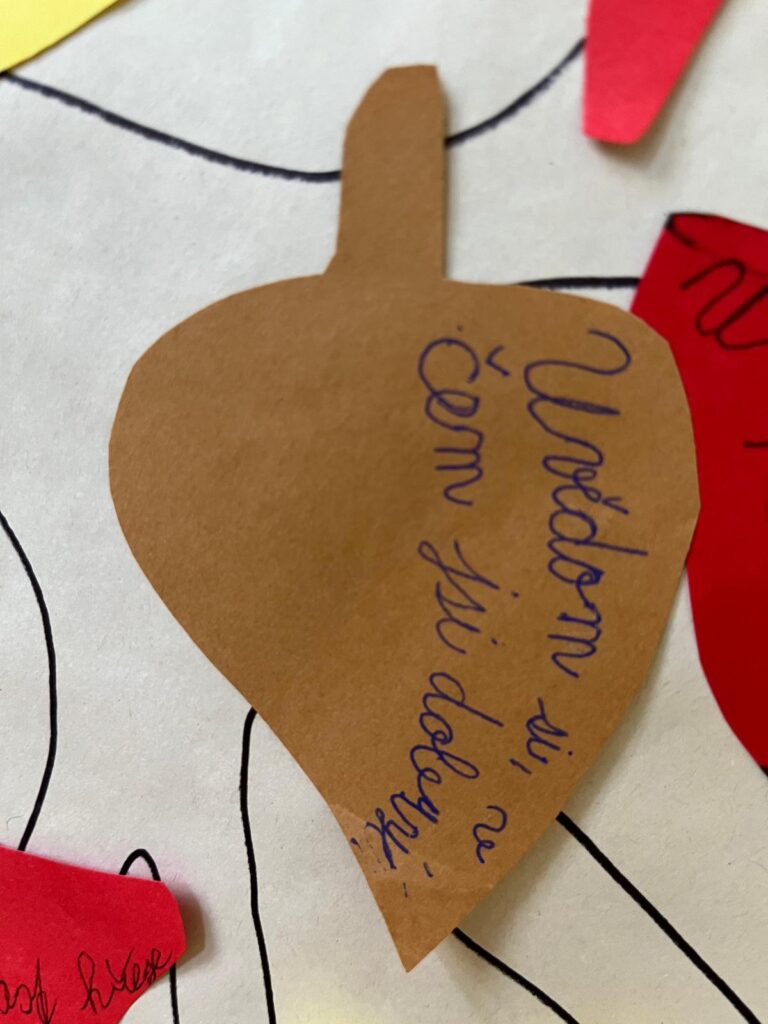 Uvědom si, v
čem jsi dobrý.